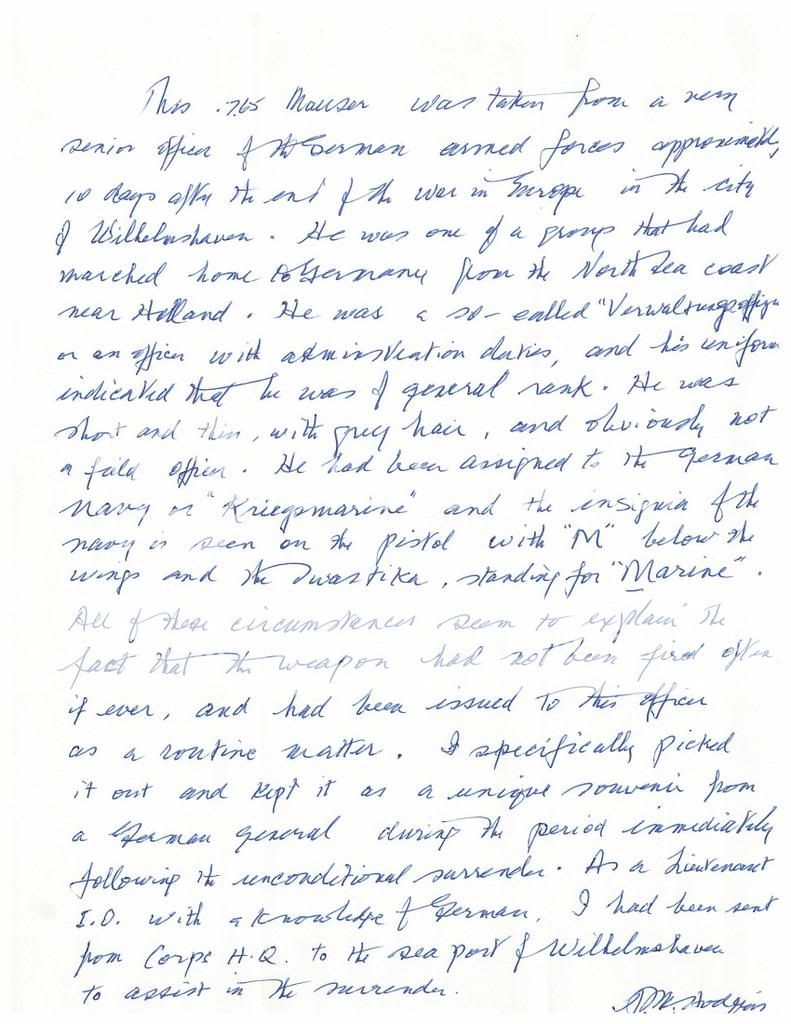 This .765 Mauser was taken from a very
senior officer of the German armed forces approximately
10 days after the end of the war in Europe in the city
of Wilhelmshaven. He was one of a group that had
marched home to Germany from the North Sea coast
near Holland. He was a so-called "Verwaltungsoffizier
or an officer with administration duties, and his uniform
indicated that he was of general rank. He was
short and thin, with grey hair, and obviously not
a field officer. He had been assigned to the German
Navy or "Kriegsmarine" and the insignia of the
navy is seen on the pistol with "M" below the
wings and the Swastika, standing for "Marine".
All of these circumstances seem to explain the
fact that the weapon had not been fired often
if ever, and had been issued to this officer
as a routine matter. I specifically picked
it out and kept it as a unique souvenir from
a German general during the period immediately
following the unconditional surrender. As a Lieutenant
I.O. with a knowledge of German, I had been sent
from Corps H.Q. to the sea port of Wilhelmshaven
to assist in the surrender.